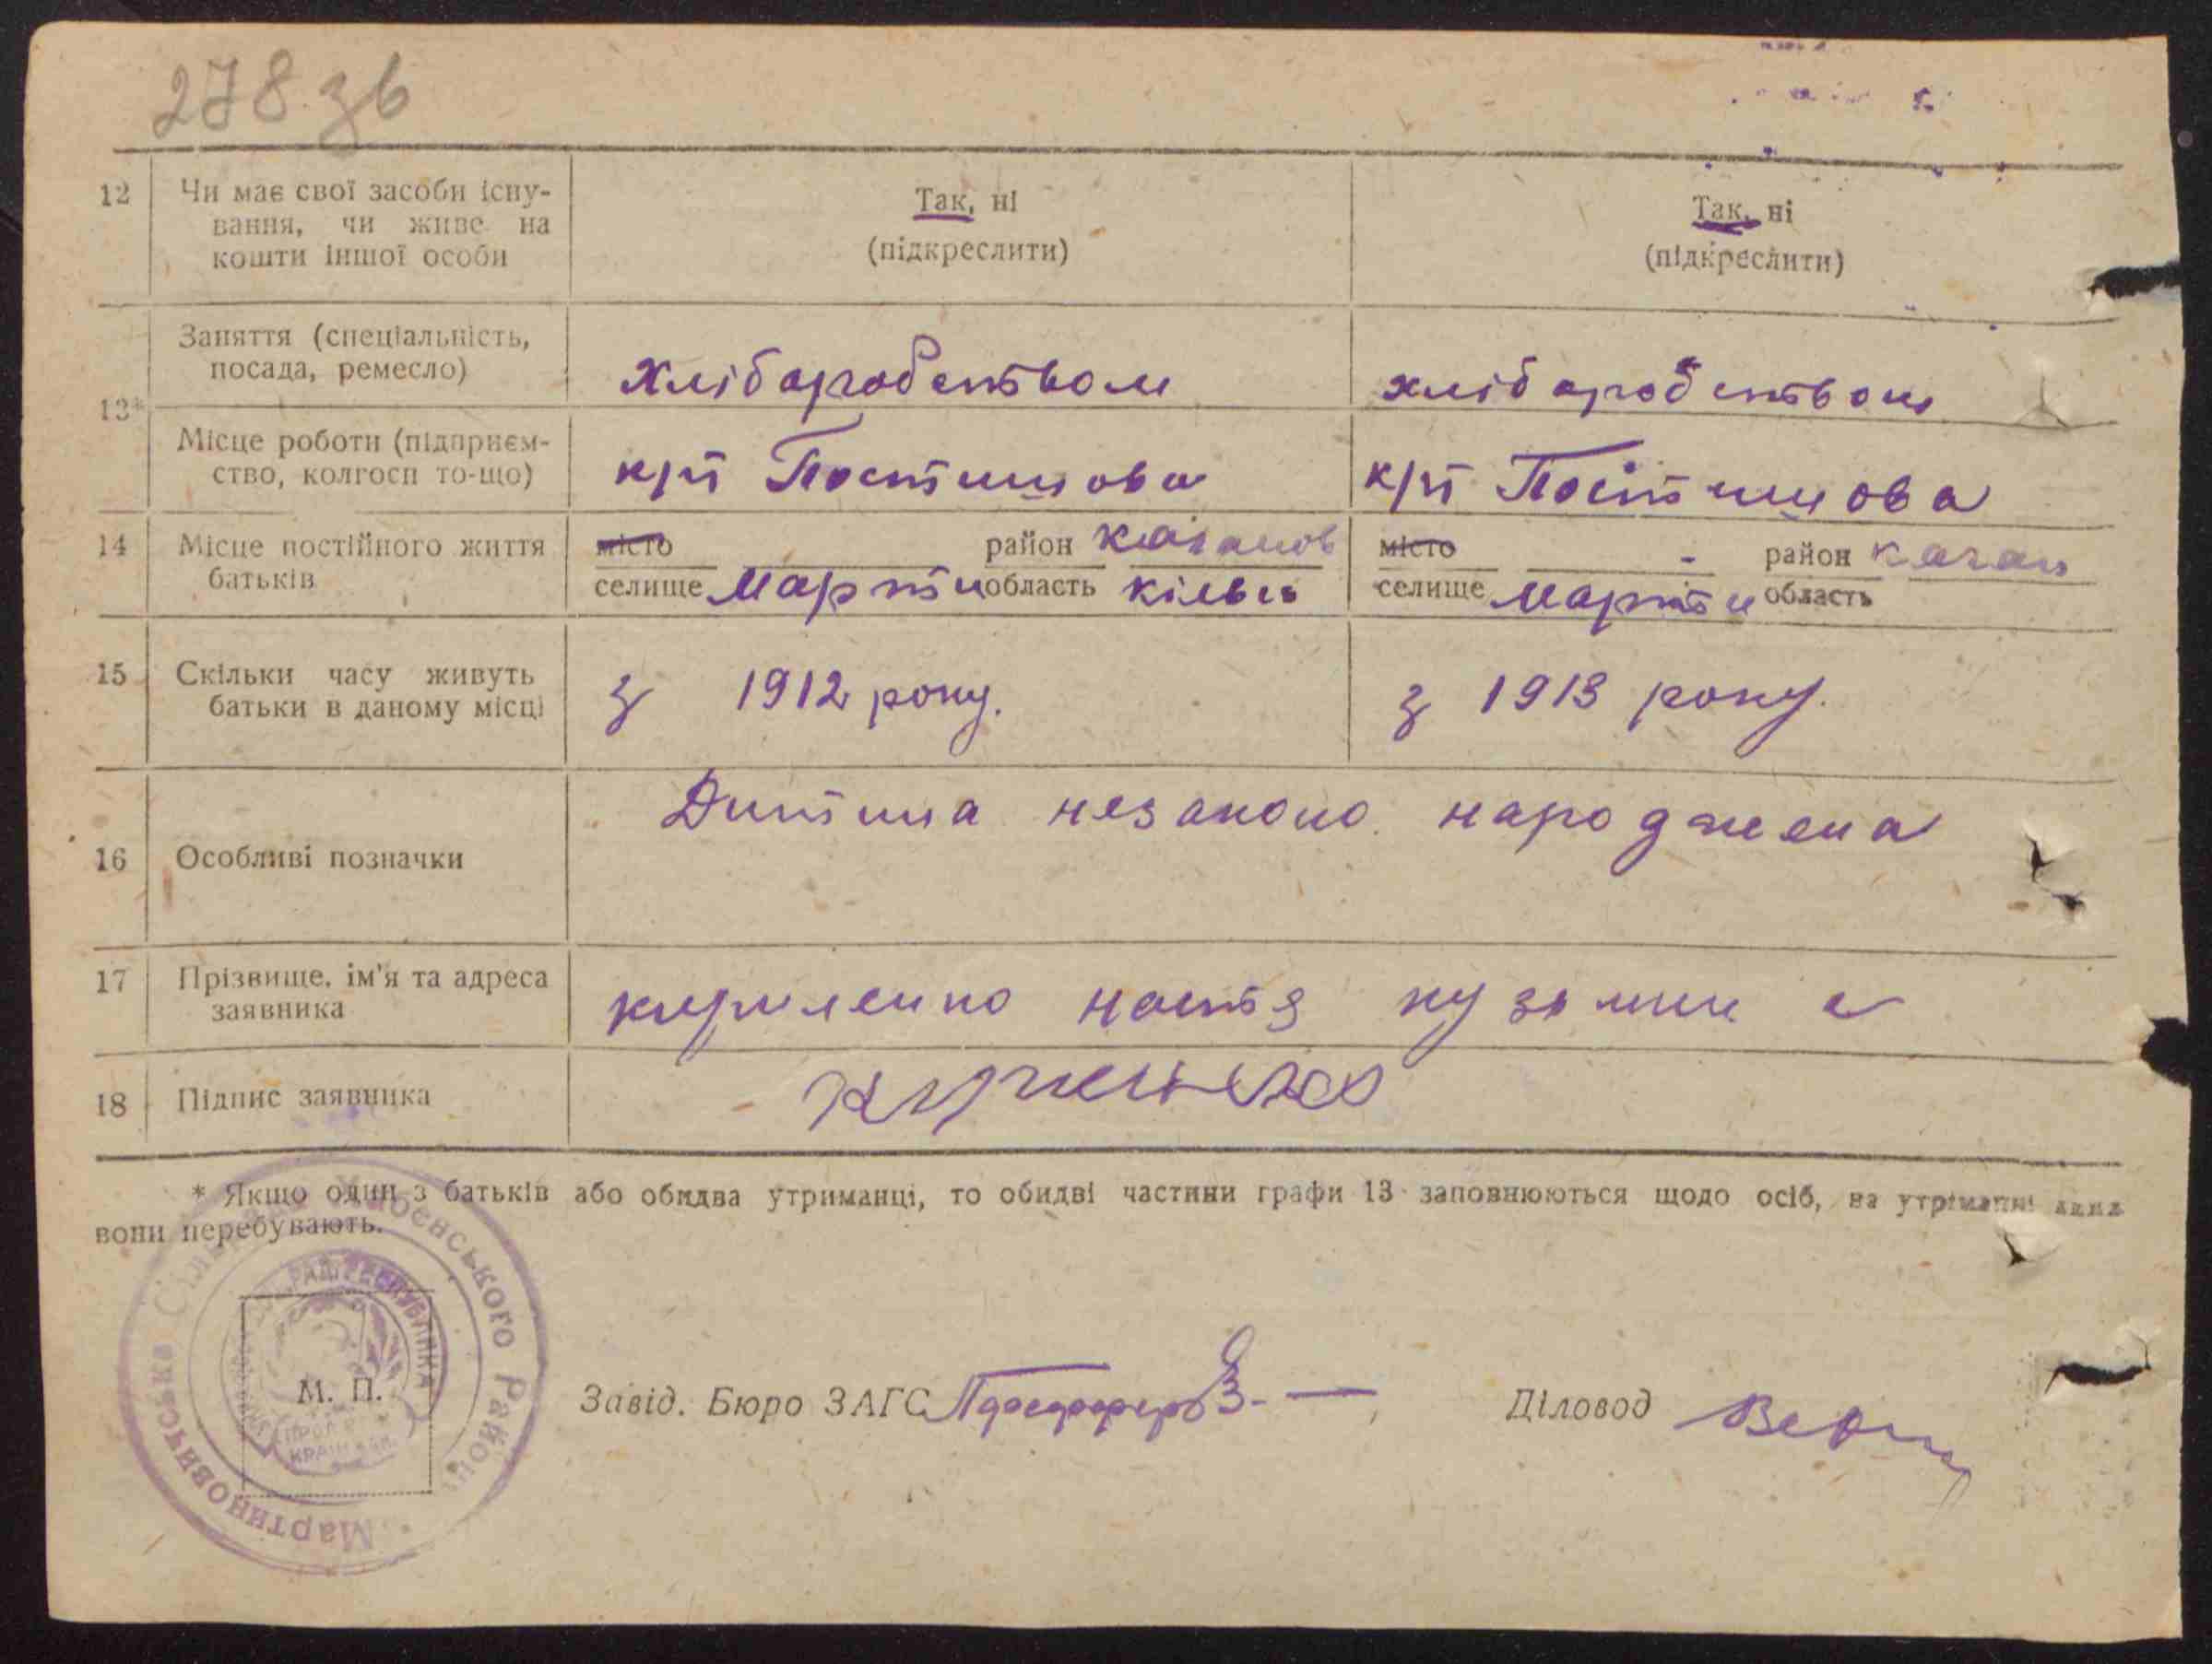 278 зв
12 Чи має свої засоби існу- Так, ні Так, ні
вання, чи живе на (підкреслити) (підкреслити)
кошти іншої особи
Заняття (спеціальність,
посада, ремесло) хліборобством хліборобством
13*
Місце роботи (підприєм-
ство, колгосп то-що) к/г Постишова к/г Постишова
14 Місце постійного життя місто район Каганов місто район Каган
батьків селище Марти область Київсь селище Марти область
15 Скільки часу живуть з 1912 року. з 1913 року.
батьки в даному місці
Дитина незаконо народжена
16 Особливі позначки
17 Прізвище, ім'я та адреса
заявника кириленко настя кузьмин
18 Підпис заявника
* Якщо один з батьків або обидва утриманці, то обидві частини графи 13 заповнюються щодо осіб, на утриманні яких
вони перебувають.
Мартиновичська Сільська Хабенського Району
М. П.
Завід. Бюро ЗАГС Діловод